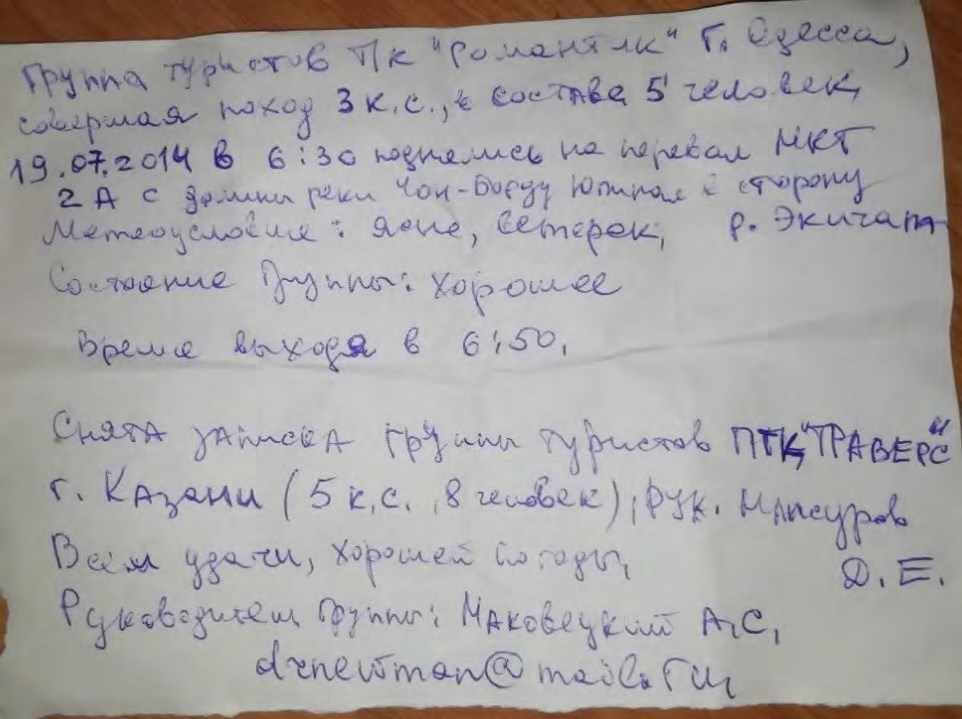 Группа туристов Т/к "Романтик" г. Одесса,
совершая поход 3 к.с., в составе 5 человек,
19.07.2014 в 6:30 поднялись на перевал МКТ
2А с долины реки Чон-Борду Южная в сторону
Метеоусловие: ясно, ветерок, р. Экичат
Состояние группы: хорошее
Время выхода в 6:50,
Снята записка группы туристов ПТК "ТРАВЕРС"
г. Казани (5 к.с., 8 человек), рук. Мансуров
Всем удачи, хорошей погоды, Д.Е.
Руководитель группы: Маковецкий А.С,
drnewman@mail.ru